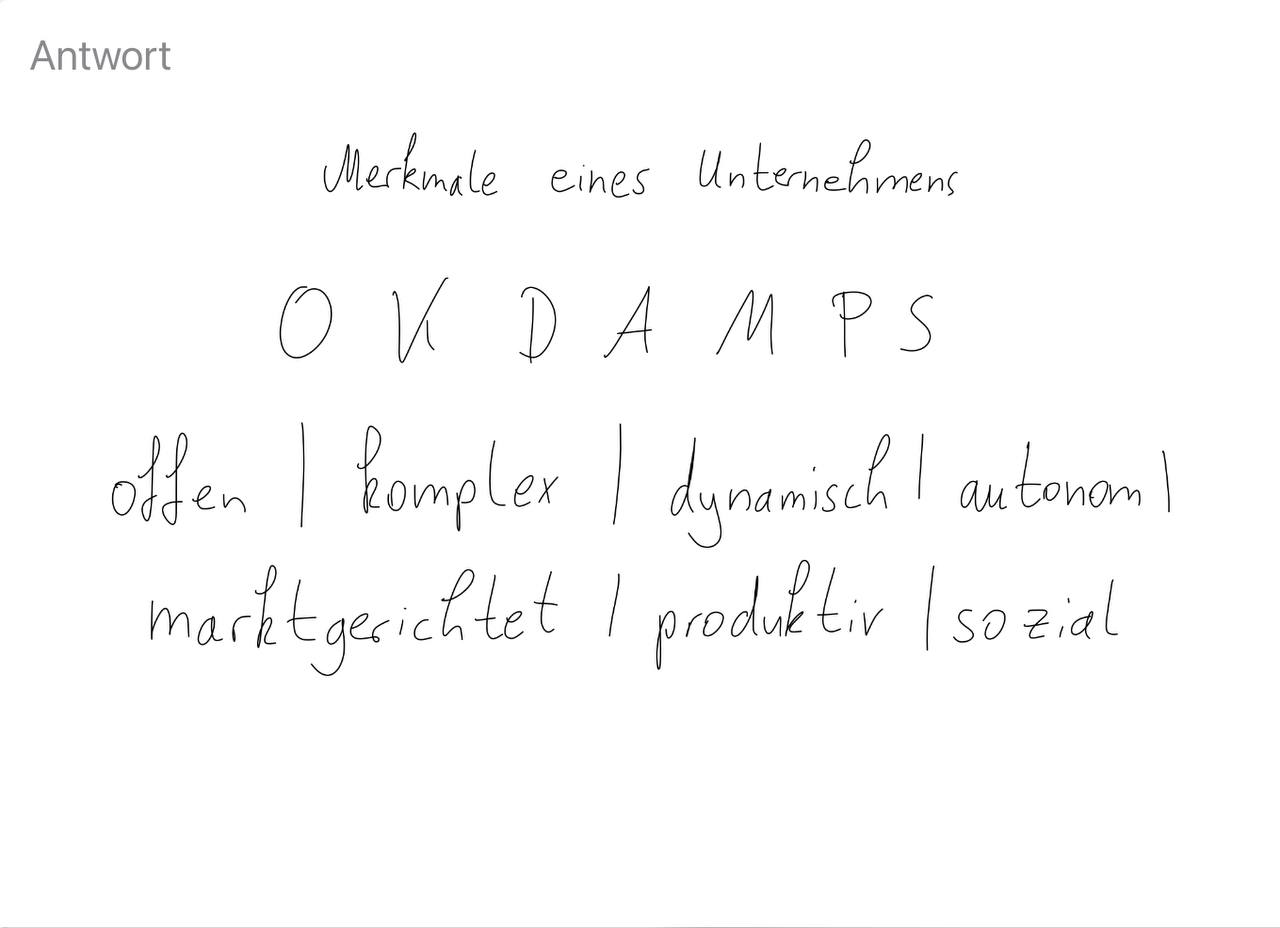 Antwort
Merkmale eines Unternehmens
O K D A M P S
offen | komplex | dynamisch | autonom |
marktgerichtet | produktiv | sozial